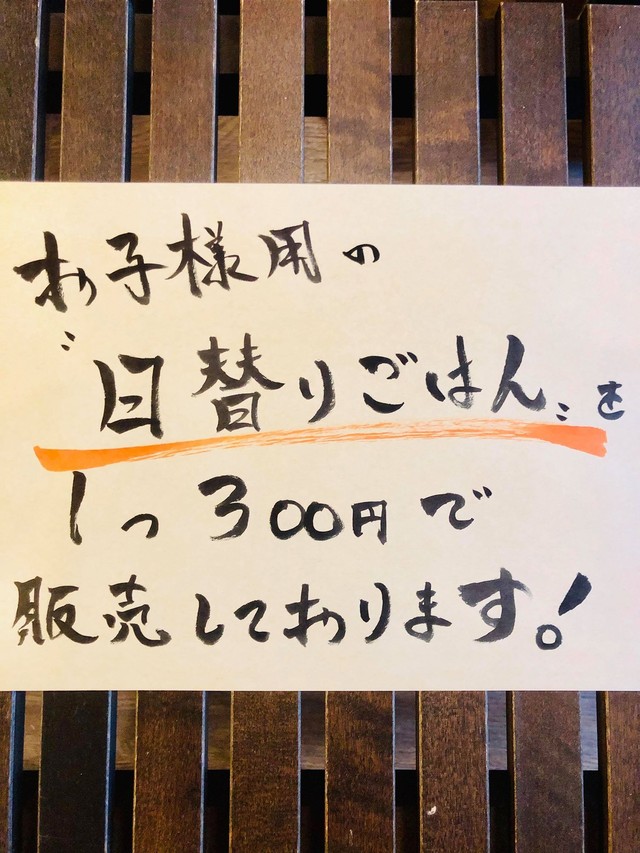 お子様用の
〝日替りごはん〟を
1つ300円で
販売しております!